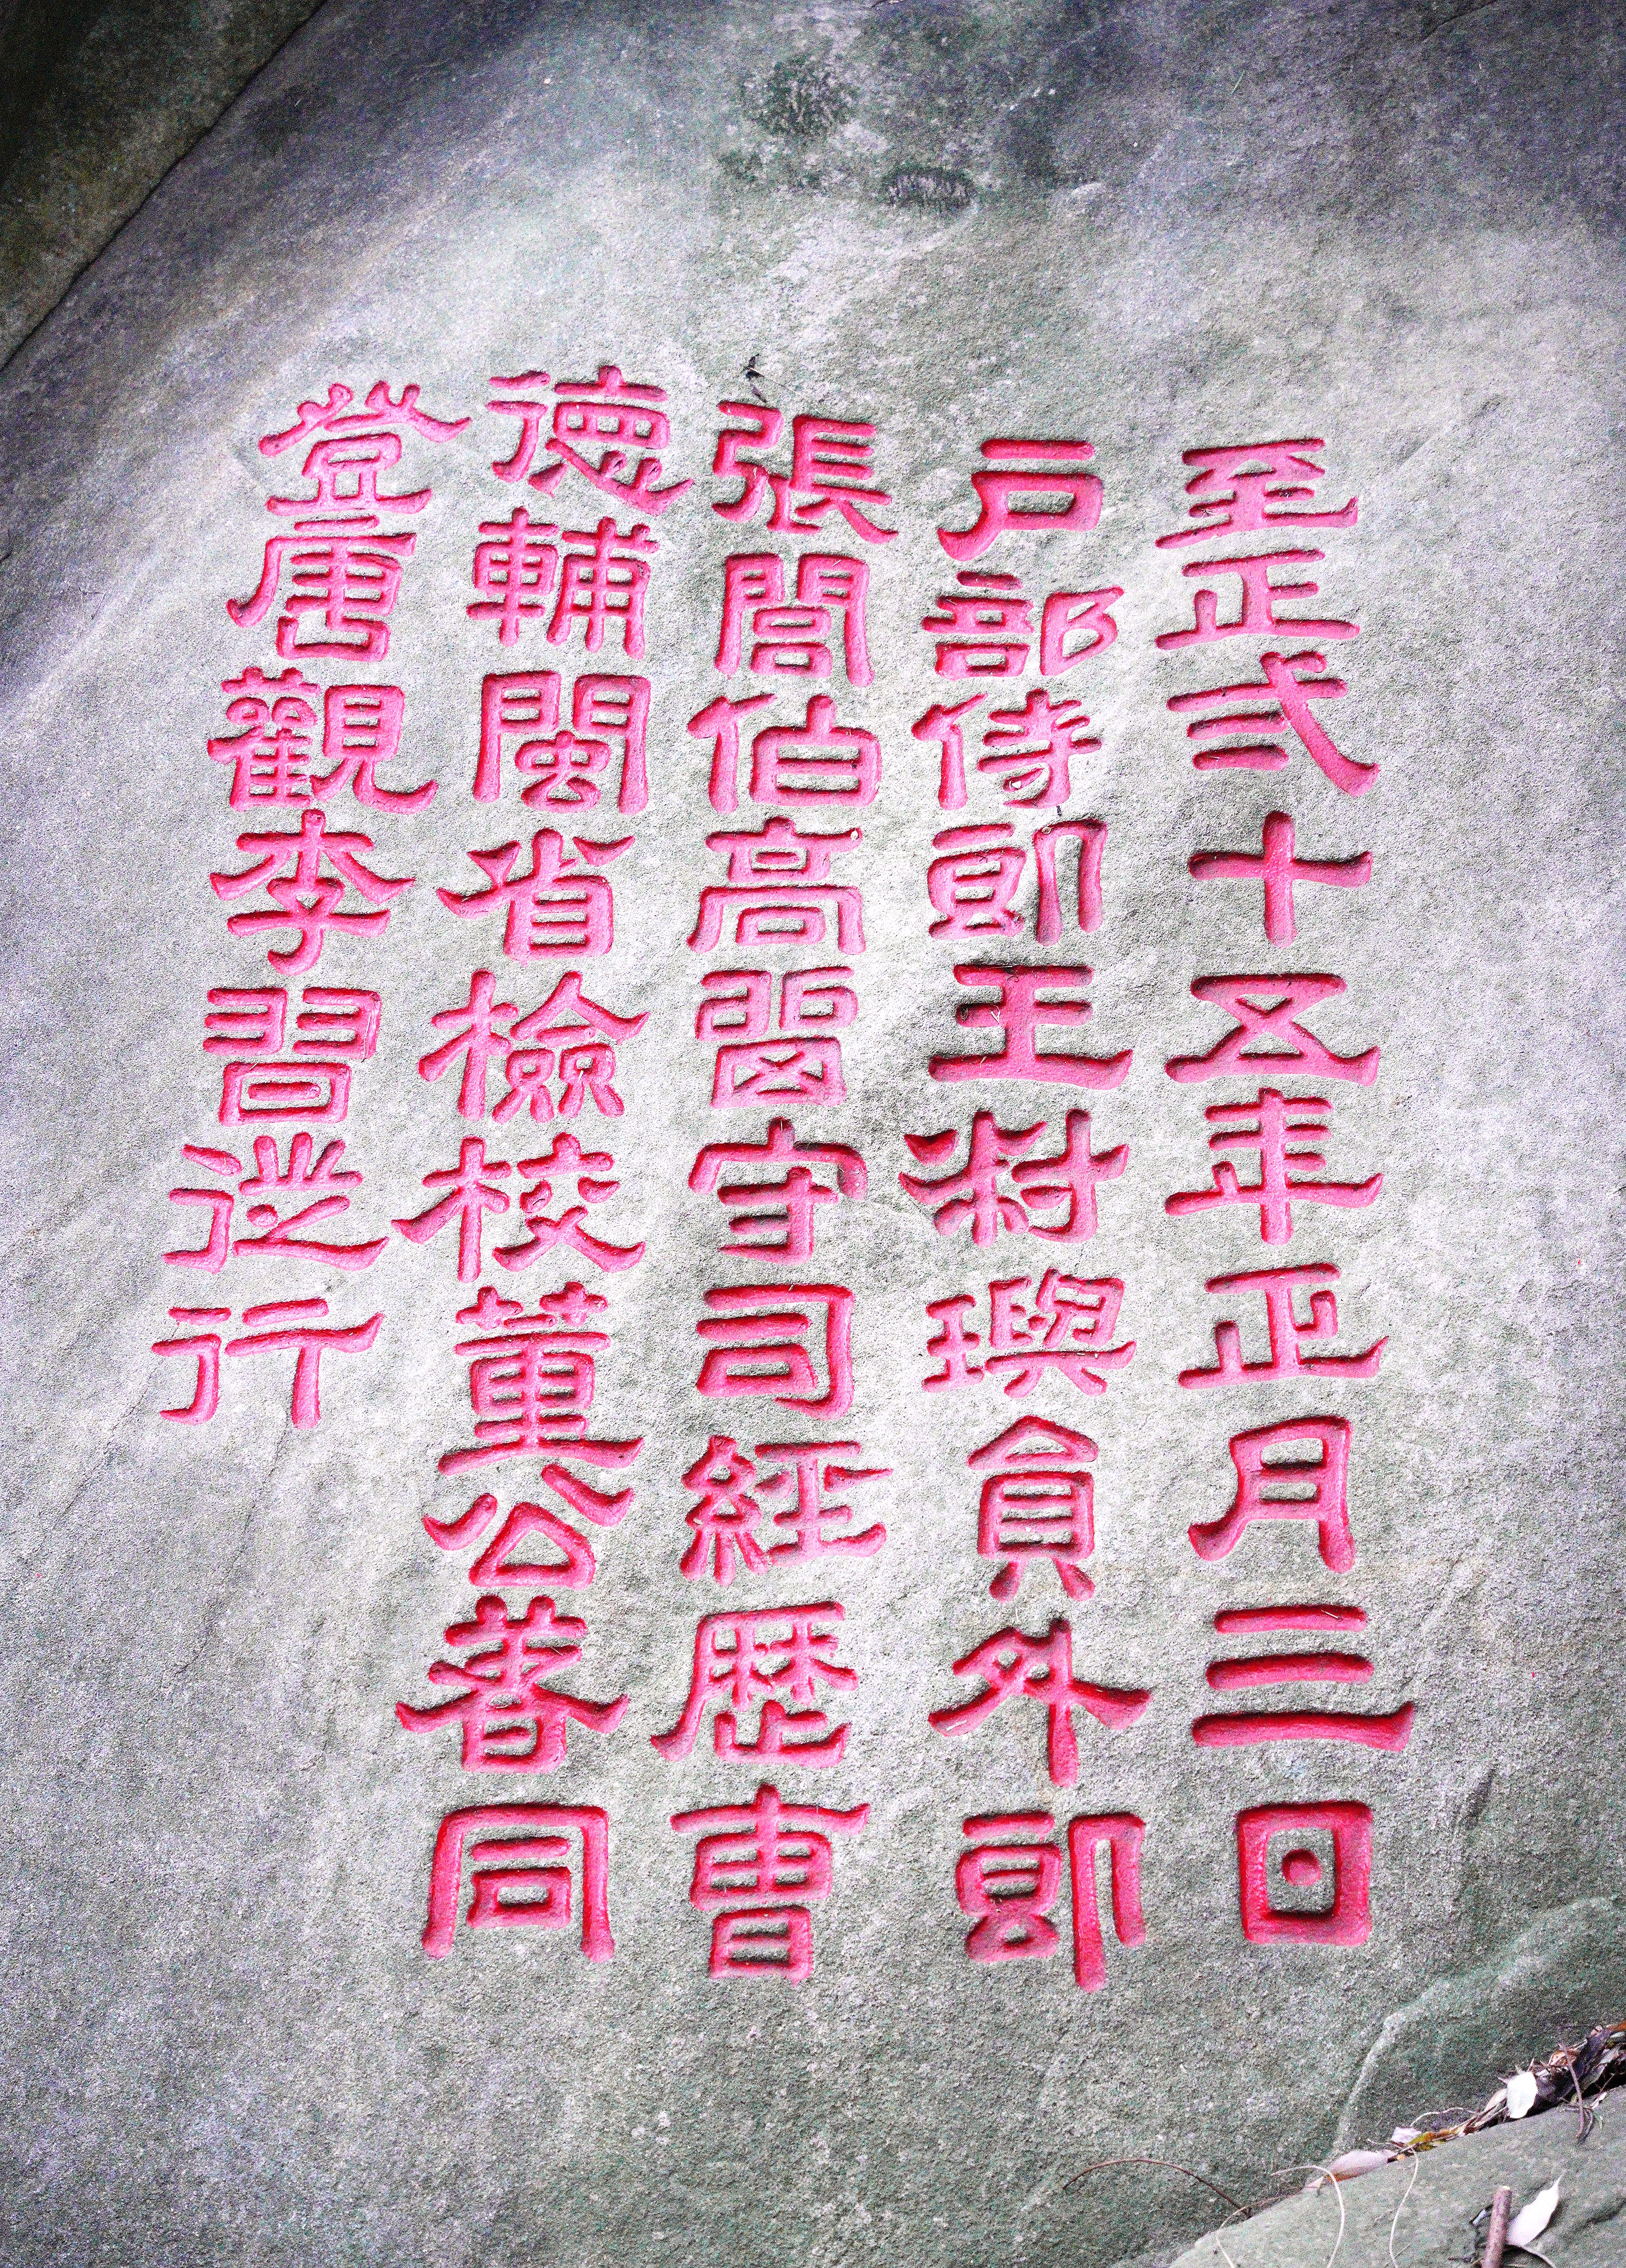 至正弍十五年正月三日
戶部侍郎王對璵員外郎
張誾伯高留守司經歷曹
德輔閩省檢校董公著同
登唐觀李習從行